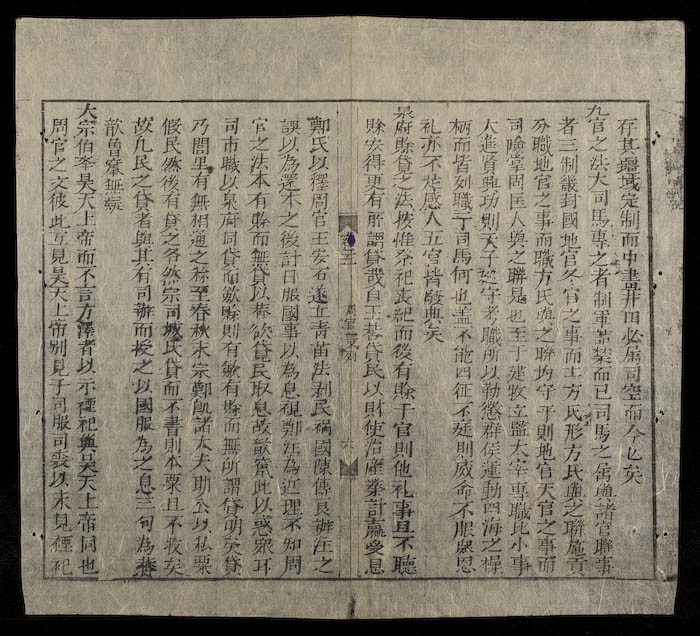 存其壃域定制而中畫井田必屬司空而今亡矣
九官之法大司馬專之者制軍詰禁而已司馬之屬與諸官聯事
者三制畿封國地官冬官之事而土方氏形方氏與之聯施貢
分職地官之事而職方氏與之聯均守平則地官天官之事而
司險掌固匡人與之聯是也至于建牧立監太宰專職比小事
大進賢興功則天子廵守考職所以勸懲群侯運動四海之操
柄而皆列職于司馬何也盖不能四征不庭則威命不服與恩
礼亦不足感人五官皆廢典矣
泉府賒貸之法按惟祭祀丧紀而後有賒于官則他礼事且不聽
賒安得更有所謂貸哉自王莽貸民以財使治產業計贏受息
周官
六
鄭氏以釋周官王安石遂立青苗法剥民禍國陳傅良辦注之
誤以為還本之後計日服國事以為息視鄭注為近理不知周
官之法本有賒而無貸以莽欲貸民取息故歆竄此以惑衆耳
司市職以泉府同貨而歛賒則有歛有賒而無所謂貸明矣貸
乃閭里有無相通之称至春秋末宋鄭飢諸大夫助公以私粟
假民然後有貸之名然宋司城氏貸而不書則本粟且不收矣
故凡民之貸者與其有司辦而授之以國服為之息三句為莽
歆竄無疑
大宗伯享昊天上帝而不言方澤者以示禋祀與昊天上帝同也
周官之文彼此互見昊天上帝別見于司服司裘以末見禋祀